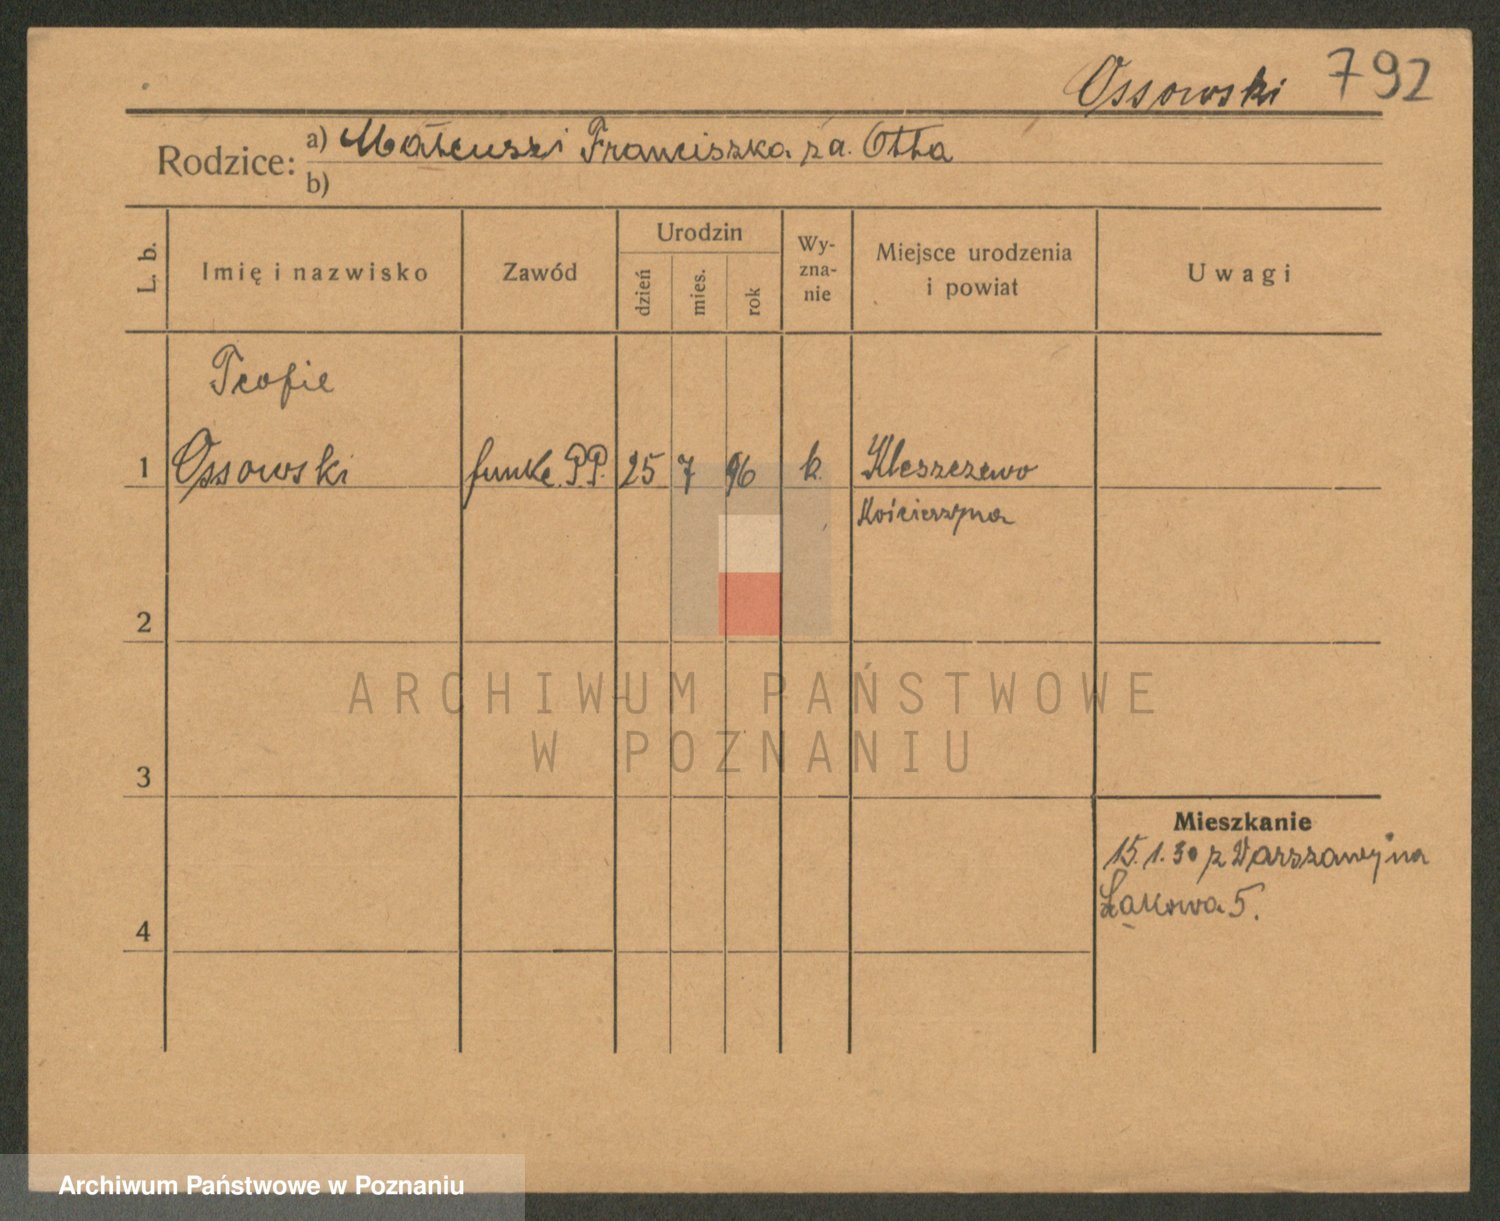 Ossowski 792
Rodzice: a) Mateusz i Franciszka za. Otta
b)
L. b.
Imię i nazwisko
Zawód
Urodzin
dzień
mies.
rok
Wy-
zna-
nie
Miejsce urodzenia
i powiat
Uwagi
Teofil
1 Ossowski funkc. P.P. 25 7 96 k. Kleszczewo
Kościerzyna
2
3
4
Mieszkanie
15.1.30 z Warszawy na
Łąkowa 5.
ARCHIWUM PAŃSTWOWE
W POZNANIU
Archiwum Państwowe w Poznaniu